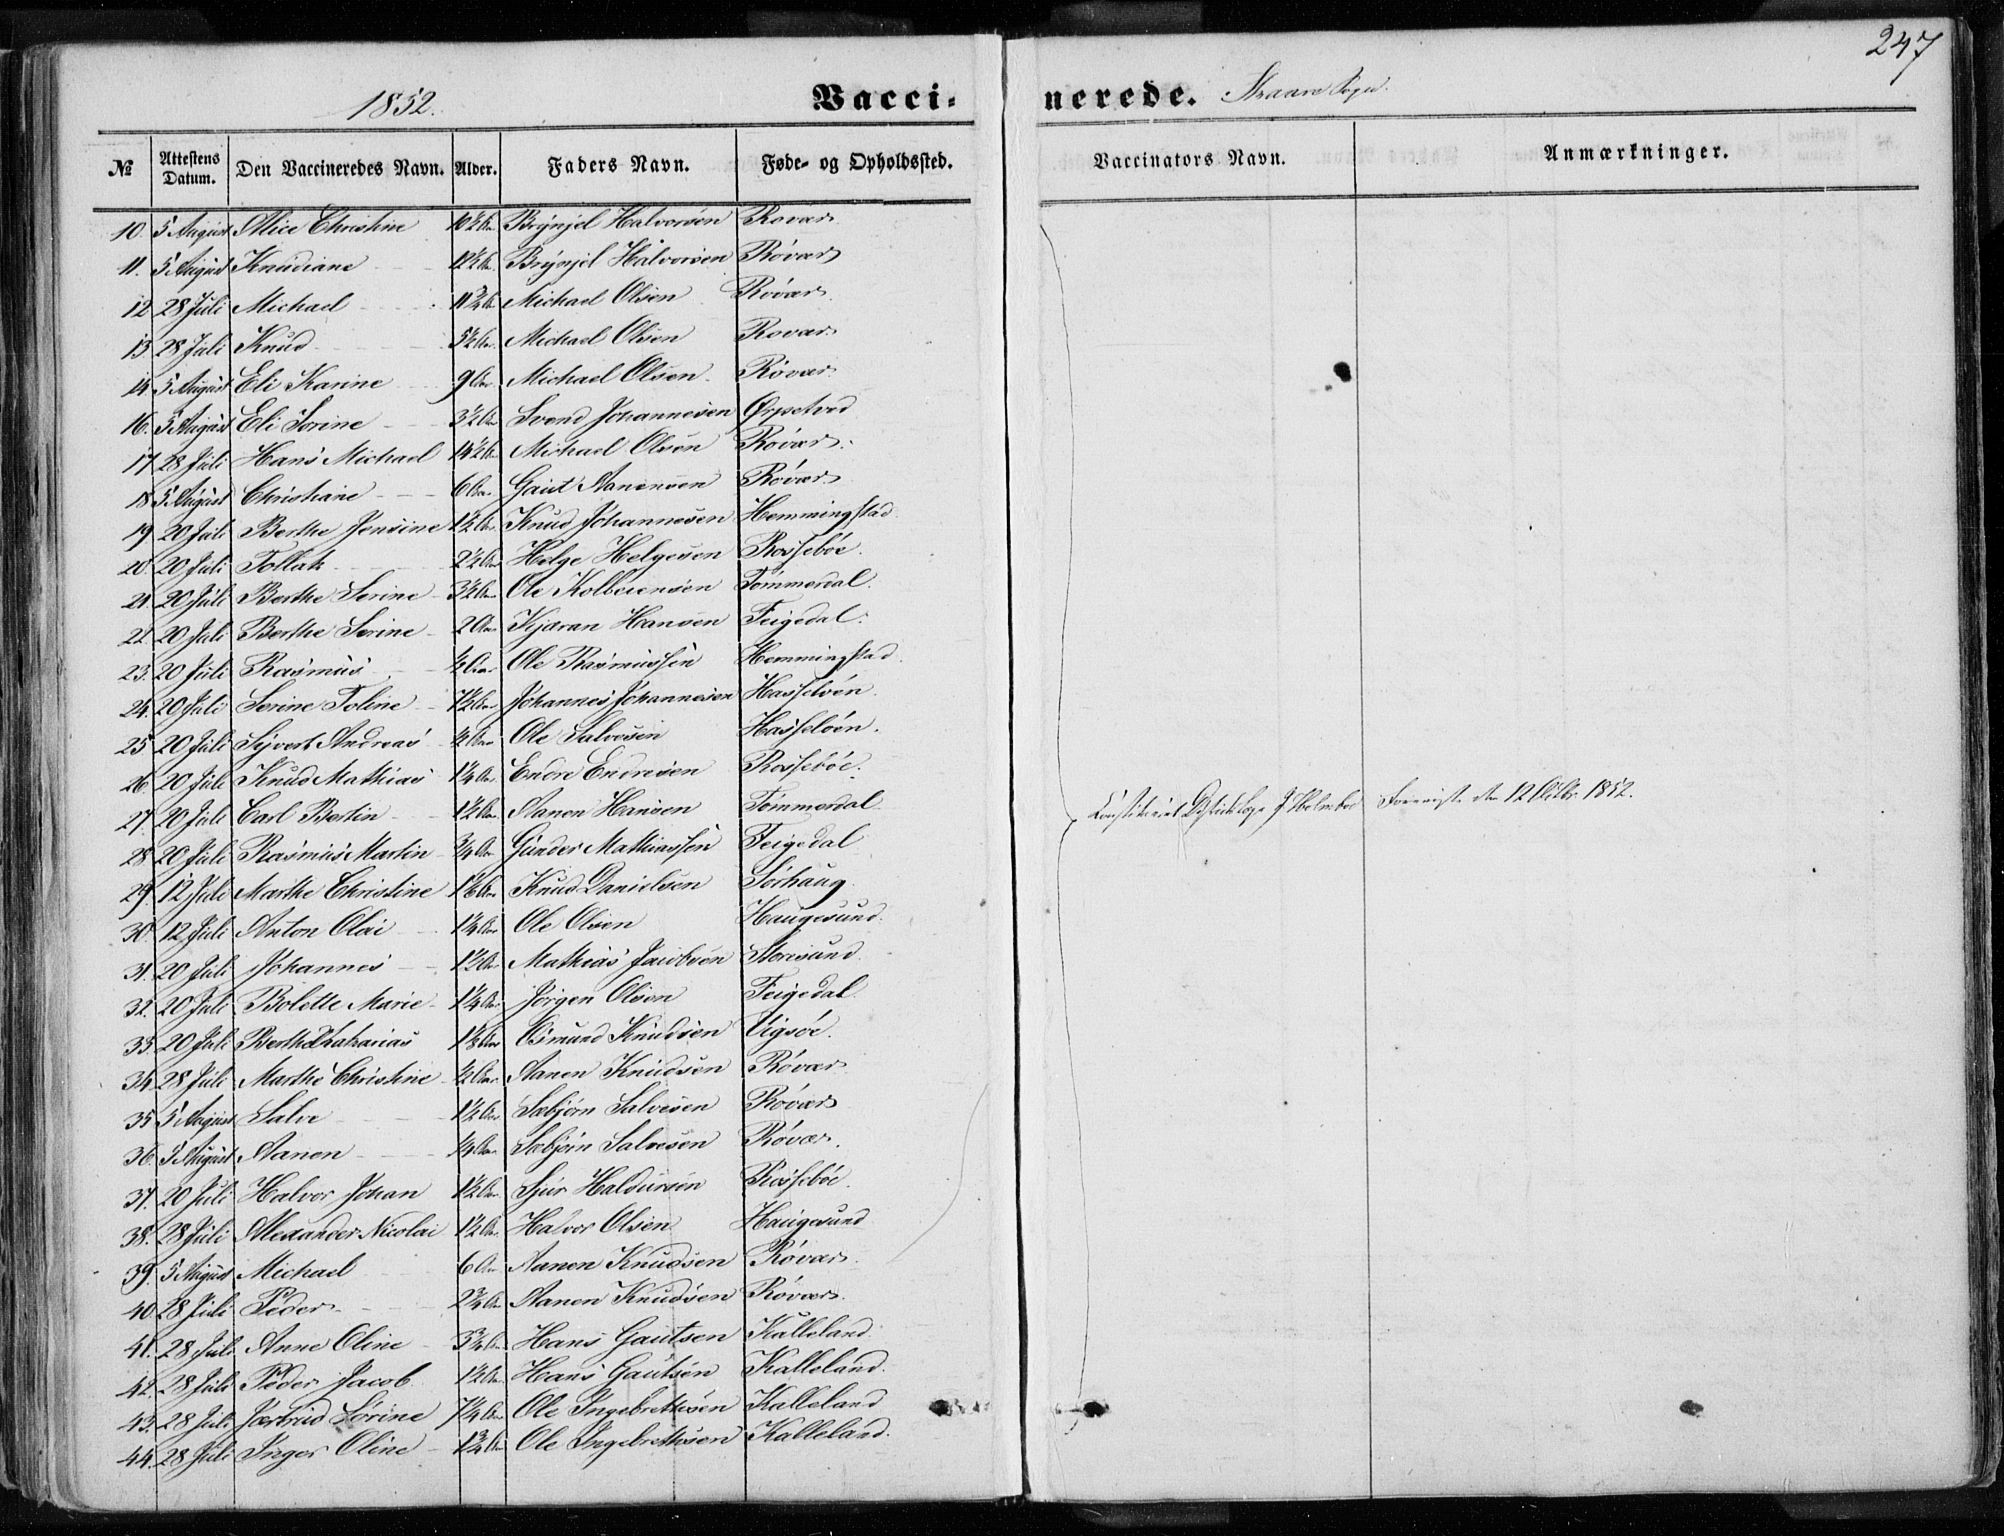 247
1852.
Vacci- nerede.
№ Attestens Datum. Den Vaccineredes Navn. Alder. Faders Navn. Føde- og Opholdssted. Vaccinators Navn. Anmærkninger.
10. 5 August Alice Christine 10½ Aar Brynjel Halvorsen Rovær
11. 5 August Knudiane 12½ Aar Brynjel Halvorsen Røvær
12 28 Juli Michael 11¾ Michael Olsen Røvær
13 28 Juli Knud 5½ Aar. Michael Olsen Rovær
14 5 August Eli Karine 9 Aar Michael Olsen Røvær
16. 5 August Eli Sorine 3½ Aar Svend Johannesen Ørpetved
17 28 Juli Hans Michael 14½ Michael Olsen Røvær
18 5 August Christiane 6 Aar Gaut Aanensen Røvær
19 20 Juli Berthe Jensine 1½ Aar Knud Johannesen Hemmingstad
20. 20 Juli Tollak 2½ Aar Helge Helgesen Rossebøe.
21 20 Juli Berthe Serine 3½ Aar Ole Kolbeiensen Tømmerdal.
22 20 Juli Berthe Serine 2 Aar Kjæran Hansen Feigedal.
23. 20 Juli Rasmus ½ Aar Ole Rasmussen Hemmingstad
24. 20 Juli Serine Toline 7½ Aar Johannes Johannesen Hasseløen.
25 20 Juli Syvert Andreas ½ Aar Ole Salvesen Hasseløen.
26. 20 Juli Knud Mathias 1¼ Aar Endre Endresen Rossebøe.
27. 20 Juli Carl Bertin 1½ Aar Aanen Hansen Tømmerdal Constitueret J Forevist den 12 1852.
28. 20 Juli Rasmus Martin ¾ Aar Gunder Mathiassen Feigedal
29. 12 Juli Marthe Christine Aar Knud Danielsen Sørhaug
30. 12 Juli Anton Olai 1¼ Aar Ole Olsen Haugesund.
31. 20 Juli Johannes 1½ Aar Mathias Jacobsen Storesund
32. 20 Juli Bolette Marie 1¼ Aar Jørgen Olsen Feigedal
33. 20 Juli Berthe Zakarias Aar Osmund Knudsen Vigsøe.
34. 28 Juli Marthe Christine ½ Aar Aanen Knudsen Røvær
35 5 August Salve 1½ Aar Sæbjørn Salvesen Røvær
36. 5 August Aanen ¼ Aar Sæbjørn Salvesen Røvær.
37. 20 Juli Halvor Johan 1½ Aar Sjur Haldorsen Rossebøe.
38. 28 Juli Alexander Nicolai 1½ Aar Halvor Olsen Haugesund
39. 5 August Michael 6 Aar Aanen Knudsen Røvær
40. 28 Juli Peder 2¾ Aar Aanen Knudsen Røvær.
41. 28 Juli Anne Oline 3¾ Aar Hans Gautsen Kalleland.
42. 28 Juli Peder Jacob 1½ Aar Hans Gautsen Kalleland.
43. 28 Juli Sørine 7¼ Aar Ole Ingebretsen Kalleland
44. 28 Juli Inger Oline 1¾ Aar Ole Ingebretsen Kalleland.